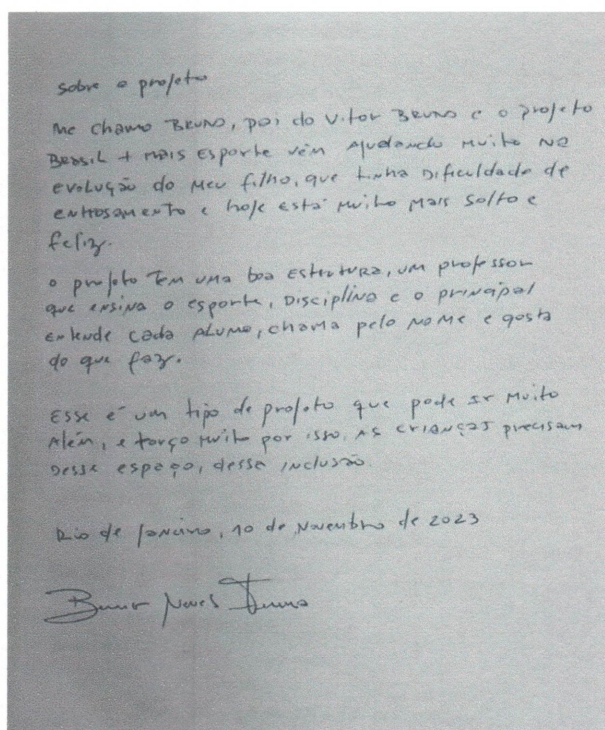 sobre o projeto
Me chamo BRUNO, pai do Vitor BRUNO e o projeto
BRASIL + MAIS ESPORTE vêm AJUDANDO MUITO NA
evolução do MEU filho, que tinha DificulDADE de
entrosamento e hoje está Muito MAIS SOLTO e
feliz.
O projeto TEM UMA boa ESTRUTURA, UM professor
que ensina o esporte, Disciplina e o principal
entende cada ALUNO, chama pelo NOME e gosta
do que faz.
ESSE é um tipo de projeto que pode ir Muito
Além, e torço Muito por isso. AS CRIANÇAS precisam
Desse espaço, desse inclusão.
Rio de Janeiro, 10 de Novembro de 2023
Bruno Neves